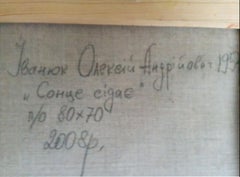 Іванюк Олексій Андрійович 195
„Сонце сідає“
п/о 80×70
2008р.